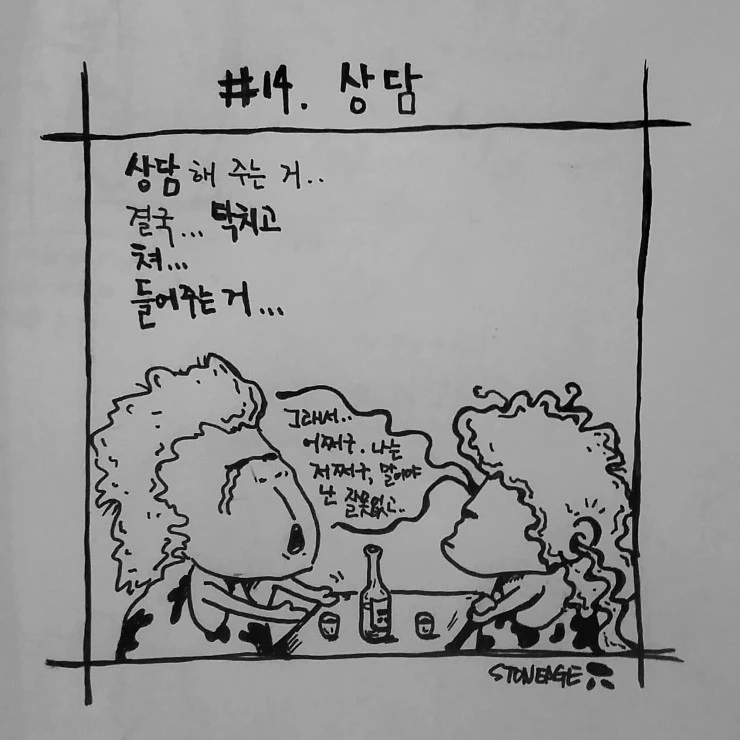 #14. 상담
상담 해 주는 거..
결국... 닥치고
쳐...
들어주는 거...
그래서..
어쩌구. 나는
저쩌구, 말이야
난 잘못없고..
STONEAGE